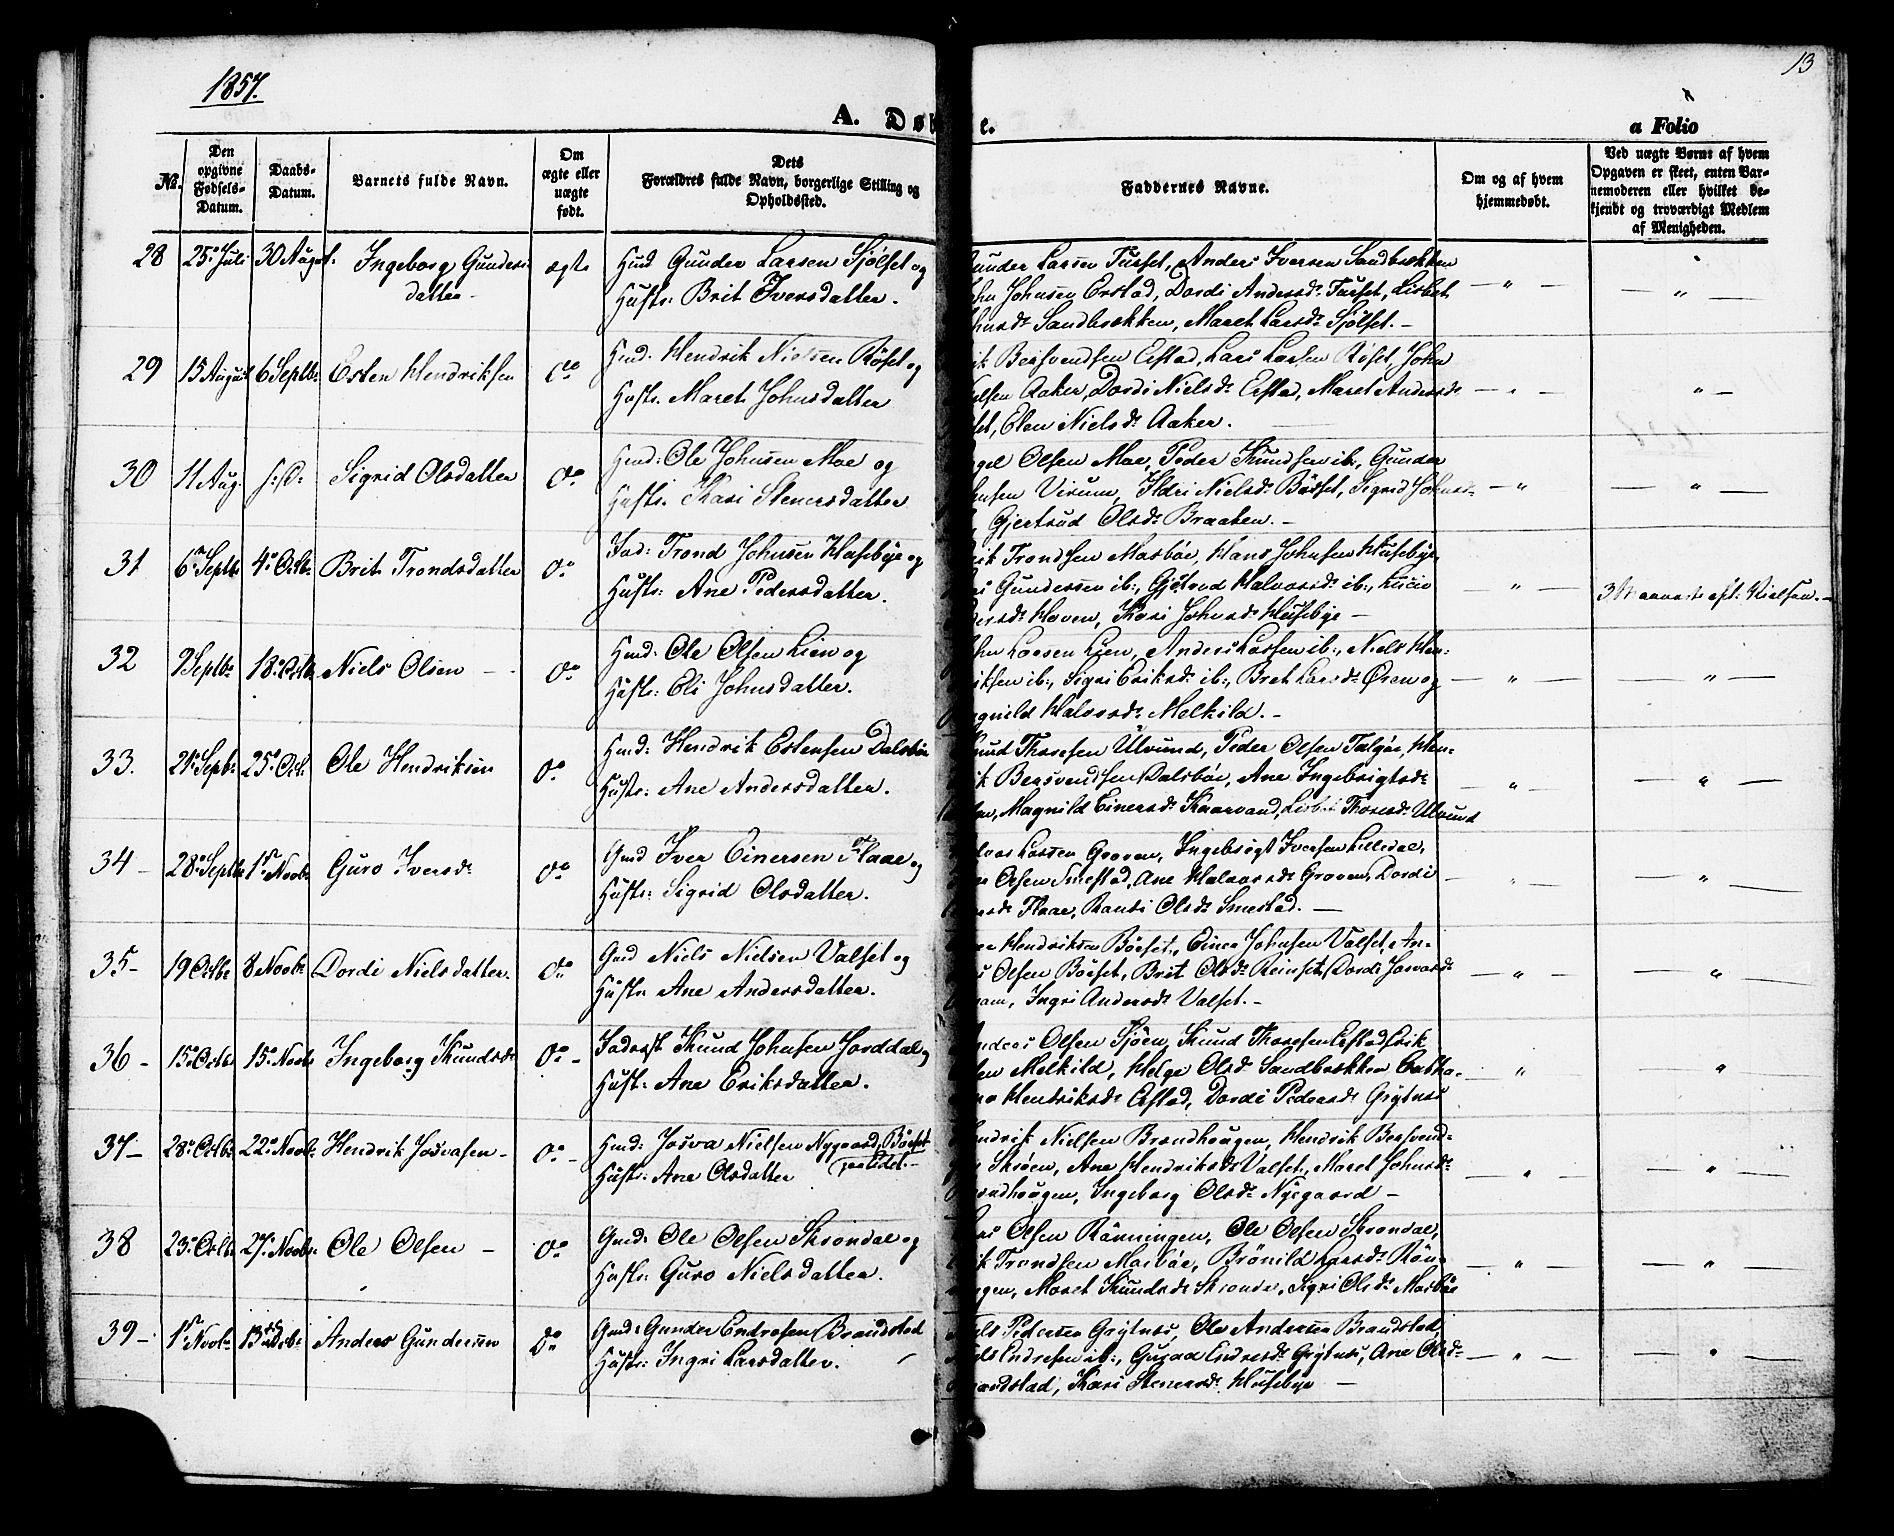 1857.
13
A. Døb
e.
a Folio
No.
Den opgivne Fødsels-Datum.
Daabs-Datum.
Barnets fulde Navn.
Om ægte eller uægte født.
Dets Forældres fulde Navn, borgerlige Stilling og Opholdssted.
Faddernes Navne.
Om og af hvem hjemmedøbt.
Ved uægte Børns af hvem Opgaven er skeet, enten Barnemoderen eller hvilket bekjendt og troværdigt Medlem af Menigheden.
28 25de Juli 30 August Ingeborg Gunders- ægte Gmd Gunder Larsen Sjølset og
datter Hustr: Brit Iversdatter.
Gunder Larsen Furset, Anders Iversen Sandbækken
John Johnsen Erstad, Dordi Andersd: Furset, Lisbet
Sandbækken, Maret Larsd: Sjølset. -
29 15 August 6 Septbr Esten Hendriksen do Gmd: Hendrik Nielsen Røset og
Hustr. Maret Johnsdatter
Bersvendsen Erstad, Lars Larsen Røset, John
Aaker, Dordi Nielsd: Erstad, Maret Andersd:
Elen Nielsd: Aaker.
30 11 Aug. s: D: Sigrid Olsdatter do Gmd: Ole Johnsen Moe og
Hustr. Kari Stenersdatter
Olsen Moe, Peder Knudsen ib:, Gunder
Virum, Ildri Nielsd: Børset, Sigrid Johnsd:
Gjertrud Olsd: Braaten. -
31 6 Septbr 4de Octbr Brit Trondsdatter do Ind: Trond Johnsen Husebye og
Hustr: Ane Pedersdatter.
Trondsen Masbøe, Hans Johnsen Husebye
Gundersen ib:, Gjertrud Halvorsd: ib:, Lucie
Hoven, Kari Johnsd: Husebye -
3 Maaneder eft: Kielsen. -
32 9 Septbr 18de Octbr Niels Olsen - do Gmd: Ole Olsen Lien og
Hustr: Eli Johnsdatter.
John Larsen Lien, Anders Larsen ib:, Niels Hen-
riksen ib:, Sigri Eriksd: ib:, Bret Larsd: Øren og
Magnild Halvorsd: Melkild. -
33. 21 Septbr 25de Oct. Ole Hendriksen do Gmd: Hendrik Estensen Dalsbøe
Hustr: Ane Andersdatter.
Knud Thoresen Ulvund, Peder Olsen Talgøe, Hen-
rik Bersvendsen Dalsbøe, Ane Ingebrigtsd:
Magnild Einersd: Kaarvand, Lisbet Thoresd: Ulvund
34 - 28de Septbr 1ste Novbr Guro Iversd: do Gmd Iver Einersen Flaae og
Hustr: Sigrid Olsdatter.
Larsen Groven, Ingebrigt Iversen Lilledal,
Olsen Smestad, Ane Halvorsd: Groven, Dordi
Flaae, Randi Olsd: Smestad. -
35 - 19 Octbr 8 Novbr Dordi Nielsdatter. do Gmd Niels Nielsen Valset og
Hustr: Ane Andersdatter.
Hendriksen Børset, Einer Johnsen Valset, An-
Olsen Børset, Brit Olsd: Reinset, Dordi
Ingri Andersd: Valset. -
36 - 15de Octbr 15de Novbr Ingeborg Knudsd: do - Inderst Knud Johnsen Jorddal og
Hustr: Ane Eriksdatter.
Anders Olsen Sjøen, Knud Thoresen Erstad, Erik
Melkild, Helge Olsd: Sandbækken, Catha-
Hendriksd: Erstad, Dordi Pedersd: Grytnes
37 - 28de Octbr 22de Novbr Hendrik Josvasen - do - Gmd: Josva Nielsen Nygaard, Børset
Hustr: Ane Olsdatter
Hendrik Nielsen Brandhaugen, Hendrik Bersvend-
Skrøen, Ane Hendriksd: Valset, Maret Johnsd:
Brandhaugen, Ingeborg Olsd: Nygaard -
38 23de Octbr 27 Novbr. Ole Olsen - do Gmd: Ole Olsen Skrondal og
Hustr: Guro Nielsdatter.
Olsen Rønningen, Ole Olsen Skrondal,
Trondsen Masbøe, Brønild Larsd: Røn-
ingen, Maret Knudsd: Skrondal, Sigri Olsd: Masbøe
39 - 1ste Novbr 13de Anders Gundersen do Gmd: Gunder Endresen Brandstad
Hustr: Ingri Larsdatter.
Niels Pedersen Grytnes, Ole Andersen Brandstad,
Niels Endresen ib:, Guroe Endresd: Grytnes, Ane Olsd:
Brandstad, Kari Stenersd: Husebye -